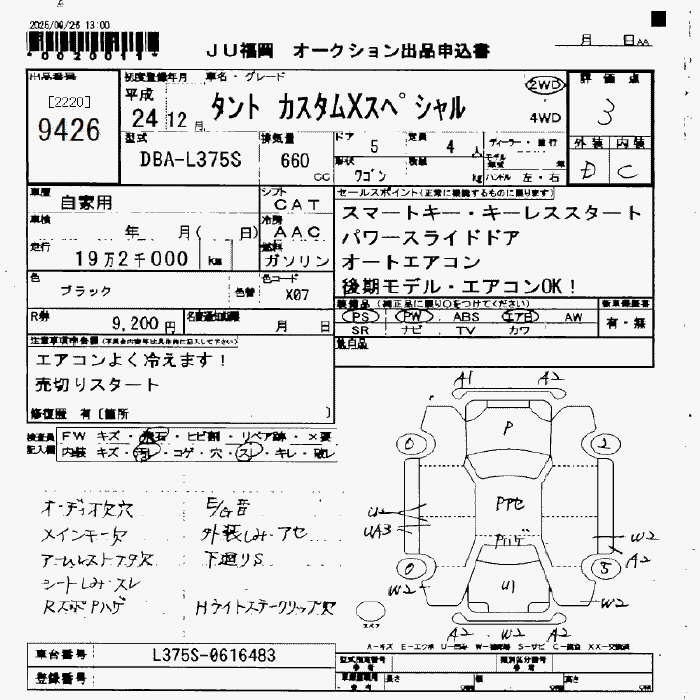 2025/09/26 13:00
*0020011*
JU福岡 オークション出品申込書
月 日 AA
出品番号
[2220]
9426
初度登録年月 車名・グレード
平成
24 12 月
タント カスタムXスペシャル
2WD
4WD
評価点
3
外装 内装
D C
型式
DBA-L375S
排気量
660
CC
ドア 5
定員 4 人
形状 ワゴン
積載 kg
ディーラー・並行
モデル年式 年
ハンドル 左・右
車歴
自家用
シフト
CAT
車検
年 月( 日)
冷房
AAC
走行
19万2千000 km
燃料
ガソリン
色
ブラック
色替
色コード
X07
R券
9,200 円
名変通知期限
月 日
セールスポイント(正常に機能するものに限ります)
スマートキー・キーレススタート
パワースライドドア
オートエアコン
後期モデル・エアコンOK!
装備品 (純正品に限り○をつけてください)
PS PW ABS エアB AW
SR ナビ TV カワ
新車保証書
有・無
後日品
注意事項申告欄
エアコンよく冷えます!
売切りスタート
修復歴 有 [箇所 ]
検査員
記入欄
FW キズ・飛石・ヒビ割・リペア跡・×要
内装 キズ・汚レ・コゲ・穴・スレ・キレ・破レ
オーディオ欠穴
メインキー欠
アームレストフタ欠
シートしみ・スレ
RスポPハゲ
E/G音
外装しみ・アセ
下廻りS
Hライトステークリップ欠
A1 A2
P
0 2
U2
UA3
Pアセ
Pハゲ
W2
A2
0 5
W2
U1
W2
A2 W2 A2
スペア
A-キズ E-エクボ U-凹み W-補修跡 S-サビ C-腐食 XX-交換済
車台番号
L375S-0616483
登録番号
型式指定番号
参考
類別区分番号
参考
車両重量
参考
長さ cm
幅 cm
高さ cm